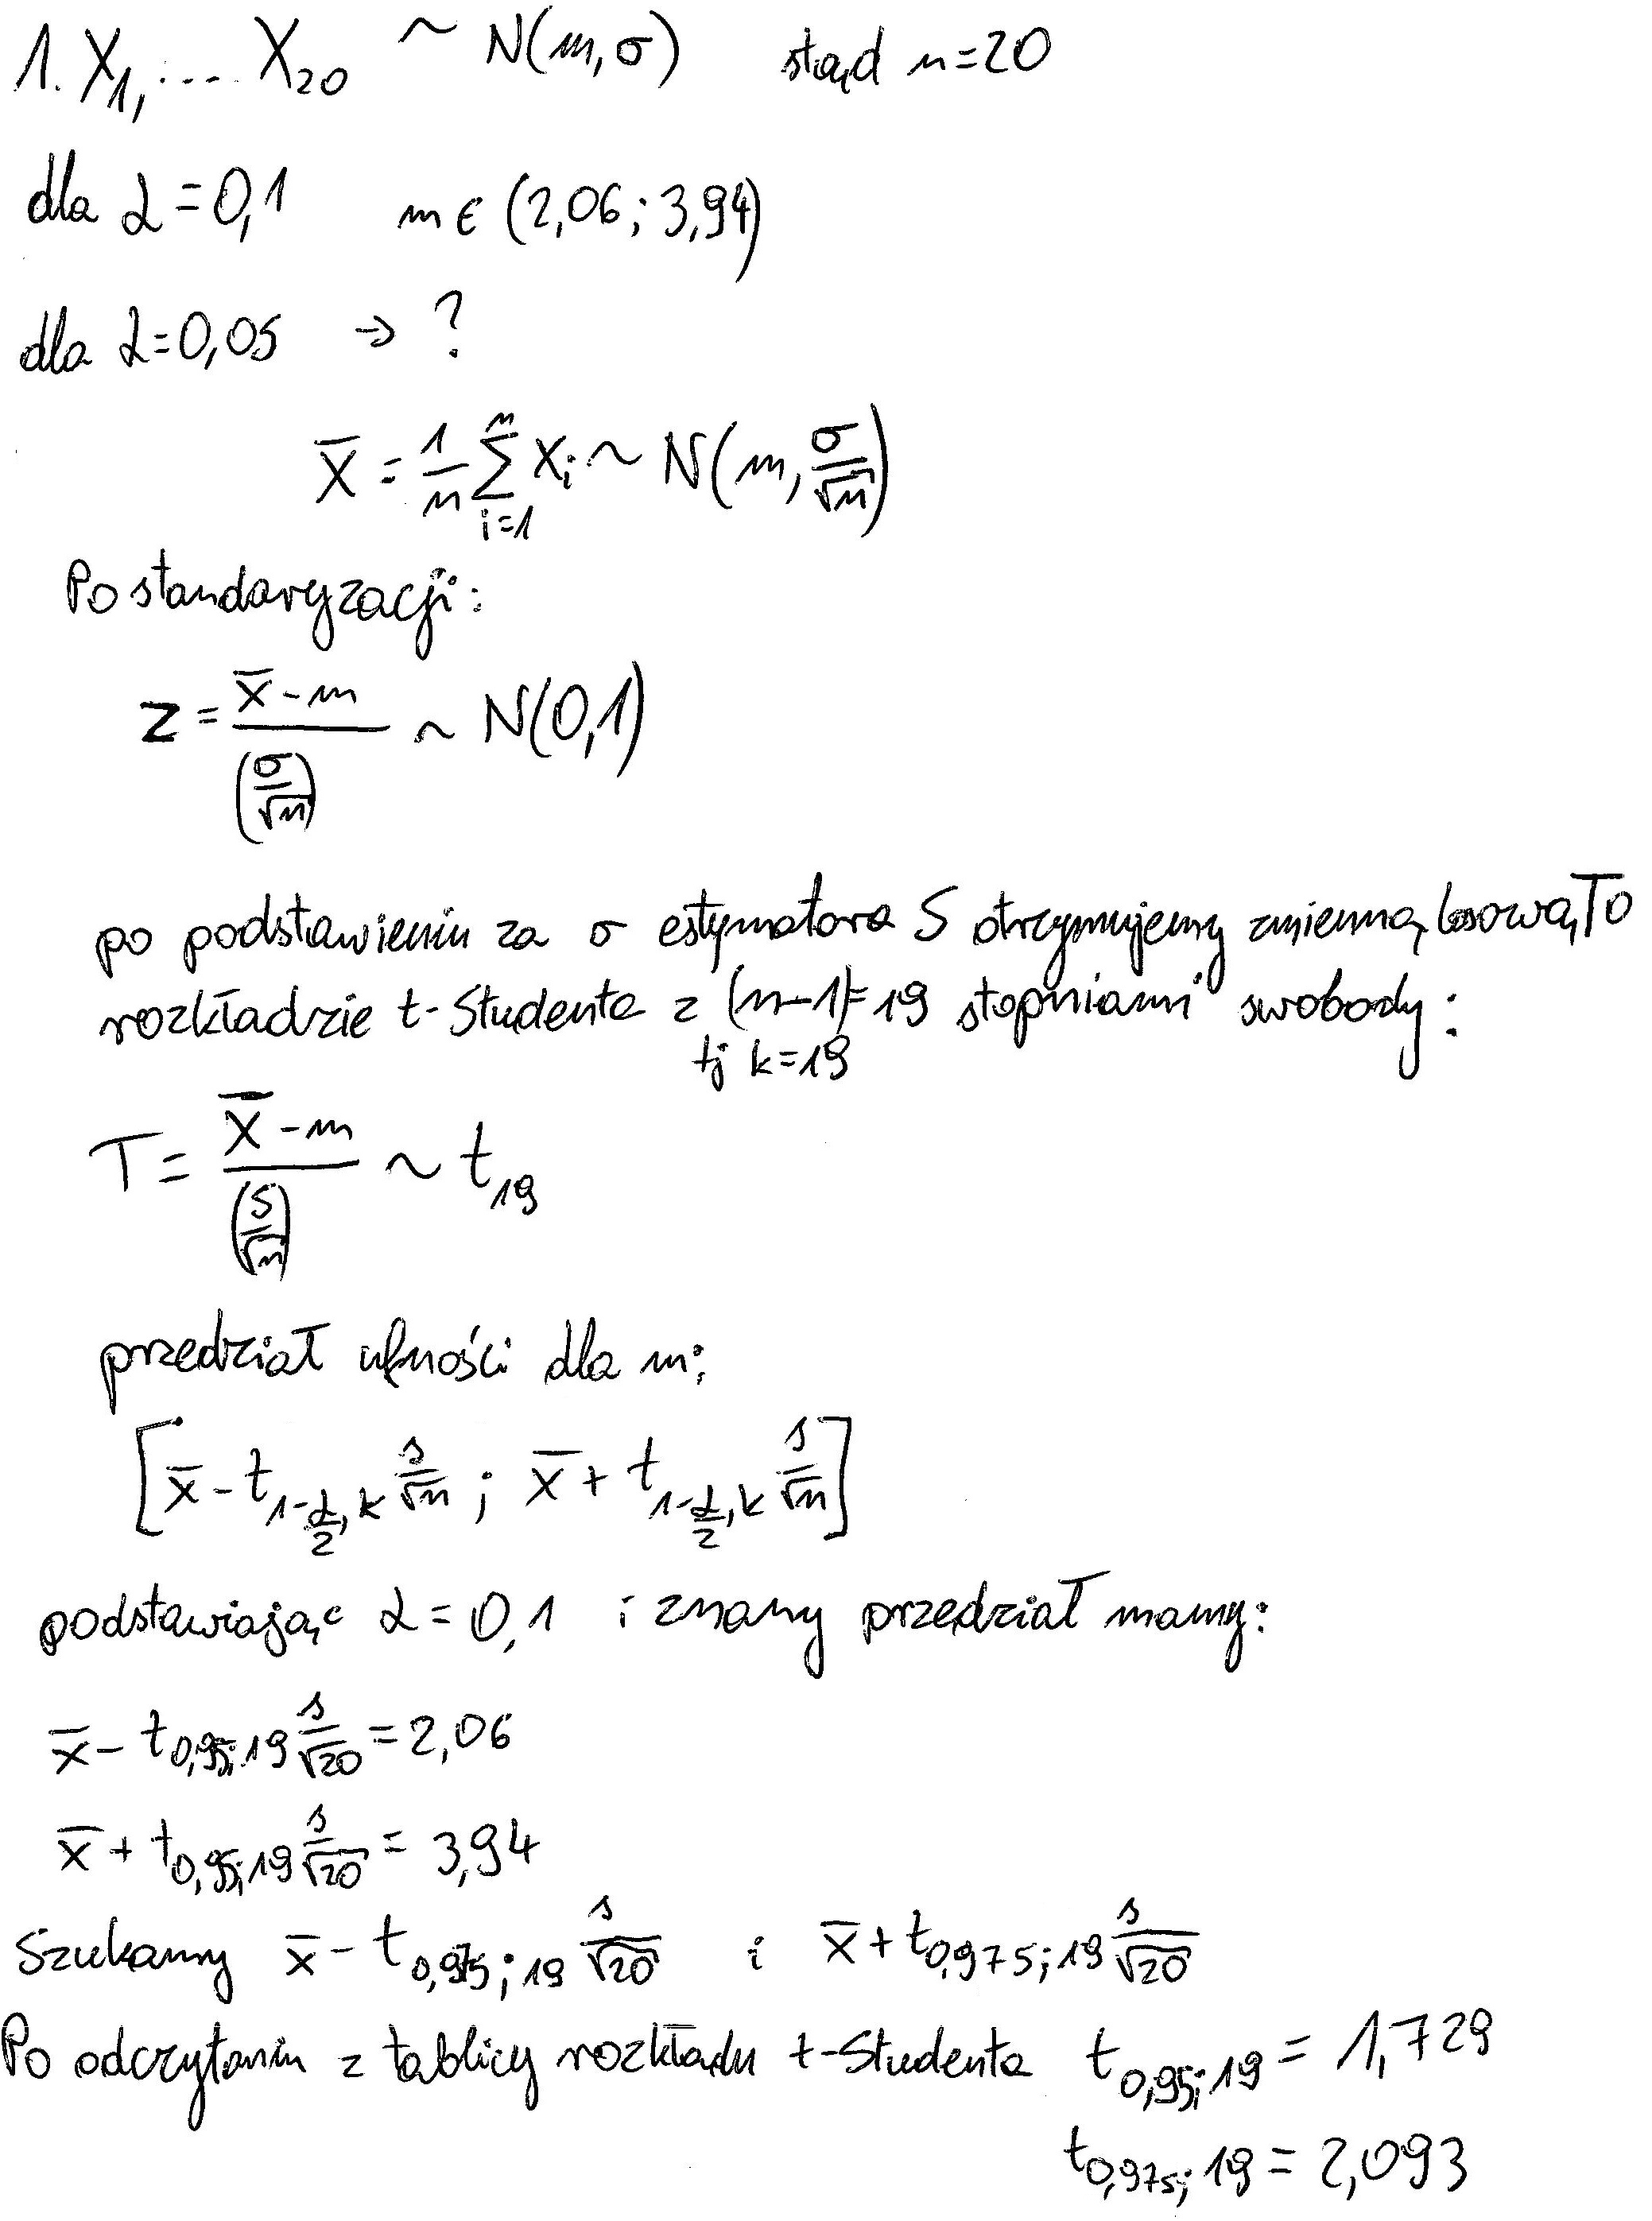 1. X₁, ... X₂₀ ~ N(m, σ) stąd n=20
dla α = 0,1 m ∈ (2,06 ; 3,94)
dla α = 0,05 → ?
X̄ = 1/n ∑_{i=1}^{n} Xᵢ ~ N(m, σ/√n)
Po standaryzacji:
Z = (X̄ - m)/(σ/√n) ~ N(0,1)
po podstawieniu za σ estymatora S otrzymujemy zmienną losową T o
rozkładzie t-Studenta z (n-1)=19 stopniami swobody:
tj k=19
T = (X̄ - m)/(S/√n) ~ t₁₉
przedział ufności dla m:
[x̄ - t_{1-α/2, k} s/√n ; x̄ + t_{1-α/2, k} s/√n]
podstawiając α = 0,1 i znany przedział mamy:
x̄ - t_{0,95;19} s/√20 = 2,06
x̄ + t_{0,95;19} s/√20 = 3,94
Szukamy x̄ - t_{0,975;19} s/√20 i x̄ + t_{0,975;19} s/√20
Po odczytaniu z tablicy rozkładu t-Studenta t_{0,95;19} = 1,729
t_{0,975;19} = 2,093